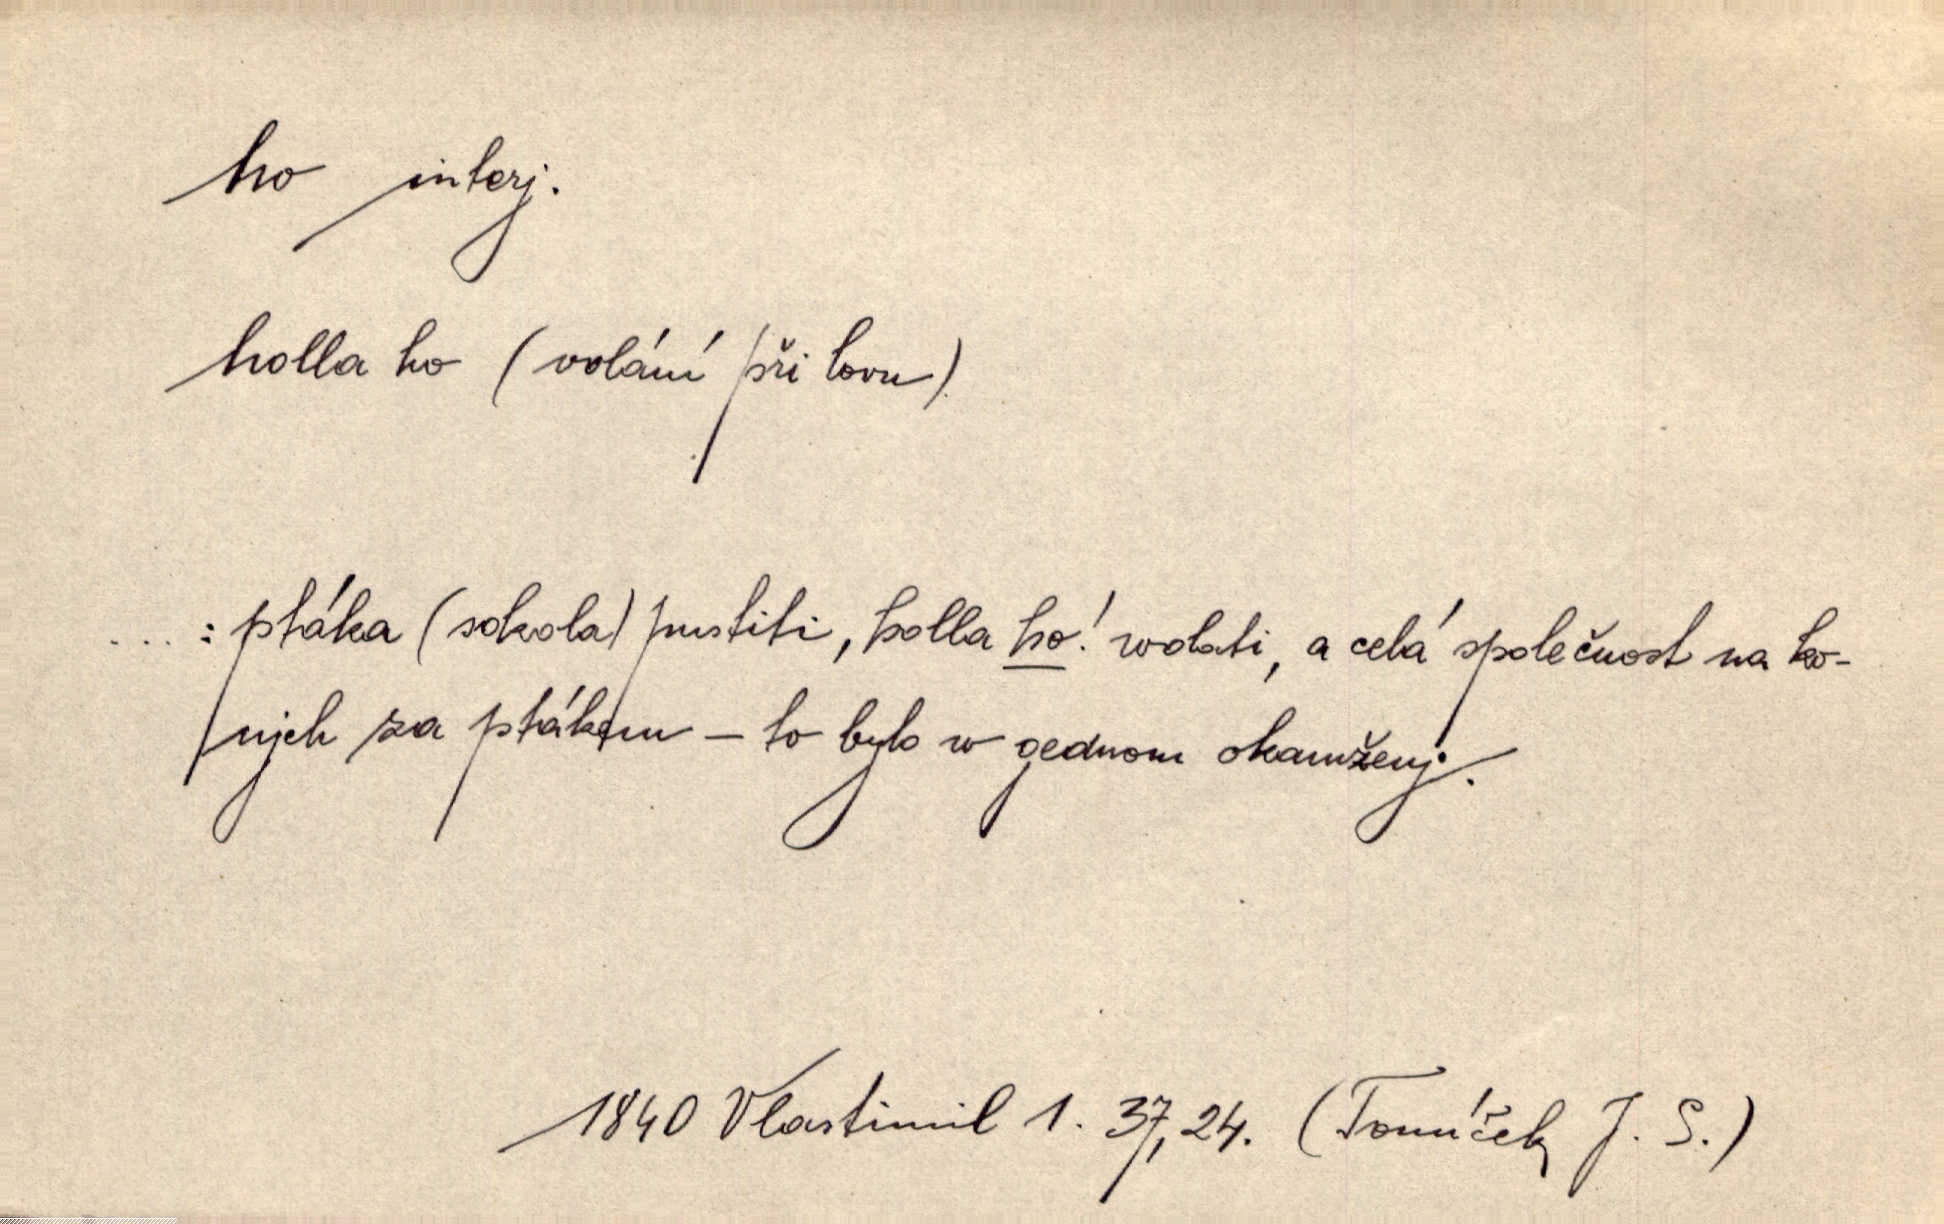 ho interj.
holla ho (volání při lovu)
....: ptáka (sokola) pustiti, holla ho! wolati, a celá společnost na ko-
njch za ptákem – to bylo w gednom okamženj.
1840 Vlastimil 1. 37, 24. (Tomíček J. S.)